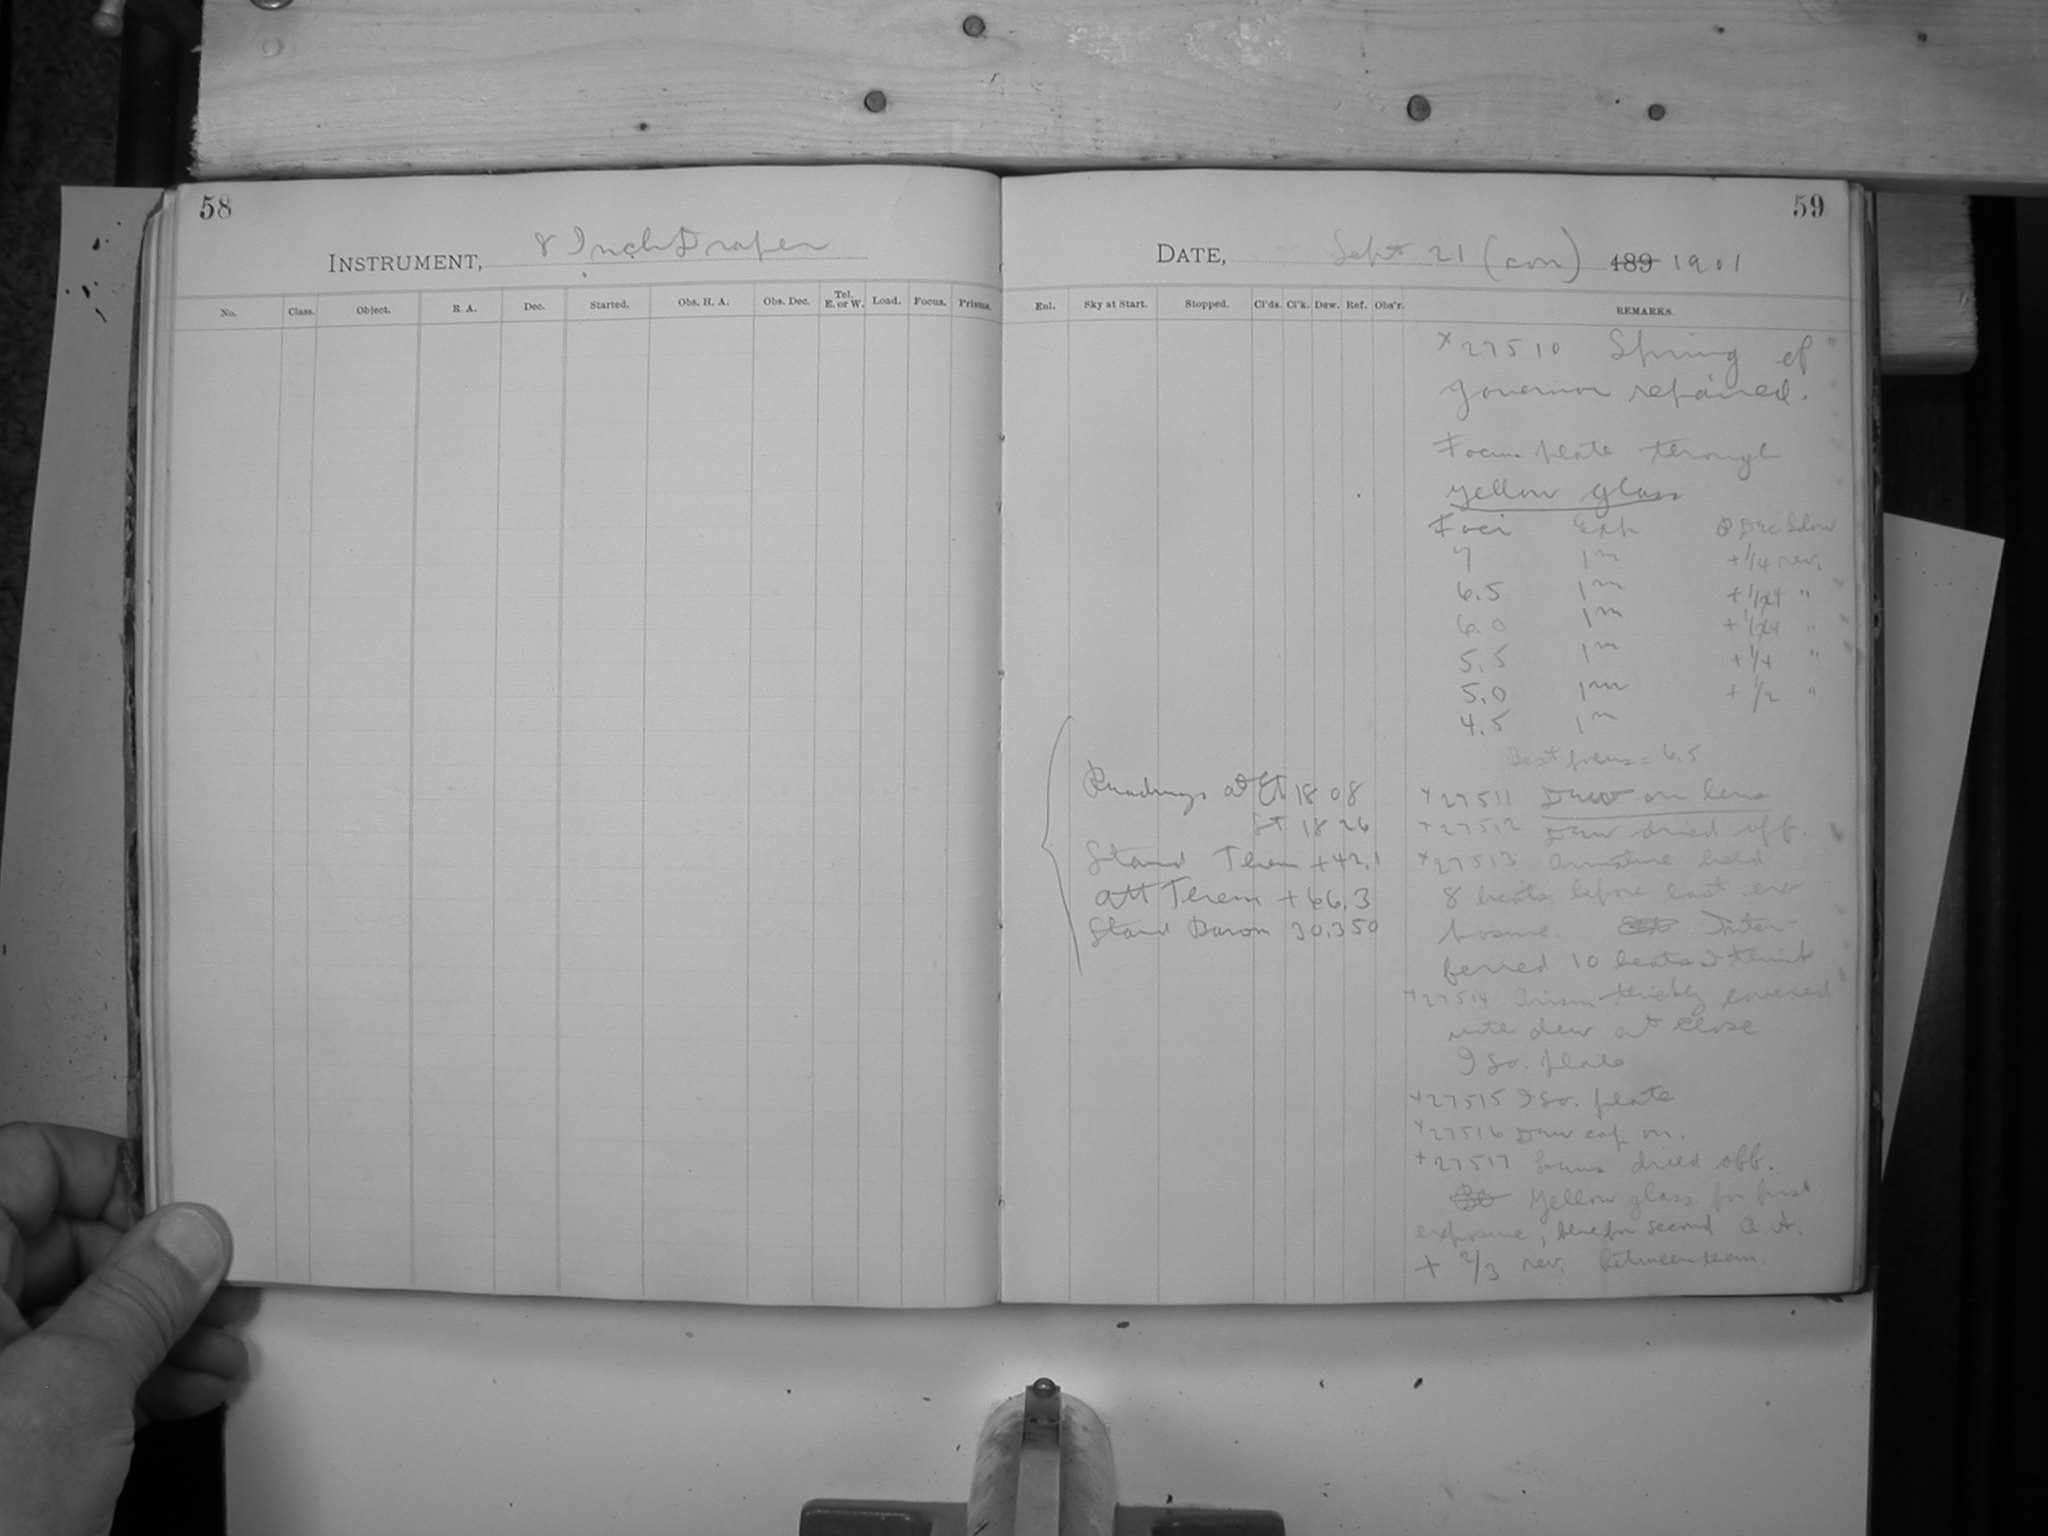 58
INSTRUMENT, 8 Inch Draper
No. Class. Object. R. A. Dec. Started. Obs. H. A. Obs. Dec. Tel. E. or W. Load. Focus. Prisms.
59
DATE, Sept 21 (con) 189 1901
Enl. Sky at Start. Stopped. Cl'ds. Cl'k. Dew. Ref. Obs'r. REMARKS.
x27510 Spring of
governor repaired.
Focus plate through
yellow glass
Foci Exp Dec Slow
7 1m +1/4 rev.
6.5 1m +1/4 "
6.0 1m +1/4 "
5.5 1m +1/4 "
5.0 1m + 1/2 "
4.5 1m
Best focus = 6.5
Readings at St 18 08
St 18 26
Stand Therm +42.1
Att Therm +66.3
Stand Barom 30.350
x27511 Dew on lens
x27512 Dew dried off.
x27513 Armature held
8 beats before last ex
posure. Inter-
ferred 10 beats I think
x27514 Prism thickly covered
with dew at close
Iso. plate
x27515 Iso. plate
x27516 Dew cap on.
x27517 Lens dried off.
Yellow glass for first
exposure, for second
+ 2/3 rev. between them.